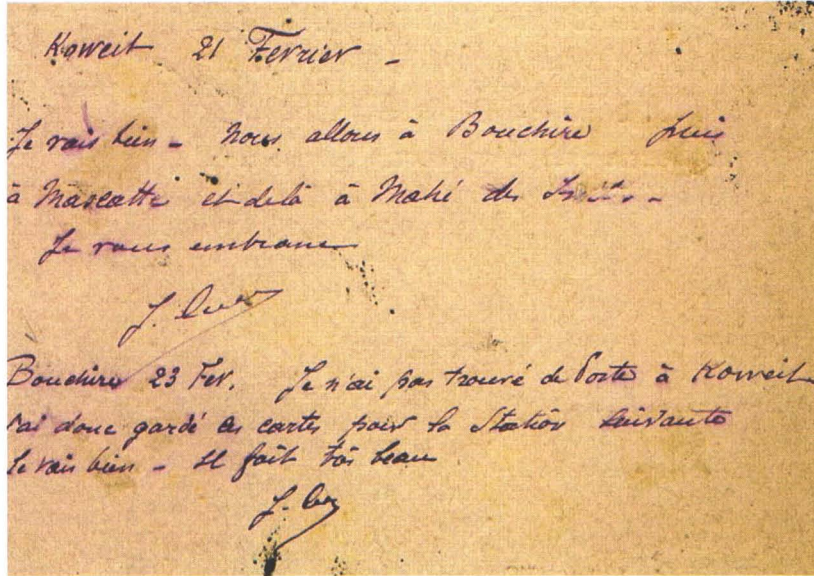 Koweit 21 Fevrier -
Je vais bien - Nous allons à Bouchire puis
à Mascatte et de là à Mahé des
Je vous embrasse
J.
Bouchire 23 Fev. Je n'ai pas trouvé de Poste à Koweit
J'ai donc gardé les cartes pour la Station suivante
Je vais bien - Il fait très beau
J.